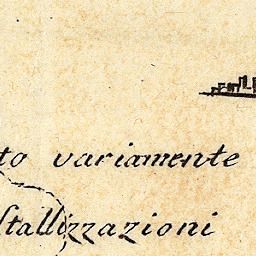 to variamente
stallizzazioni